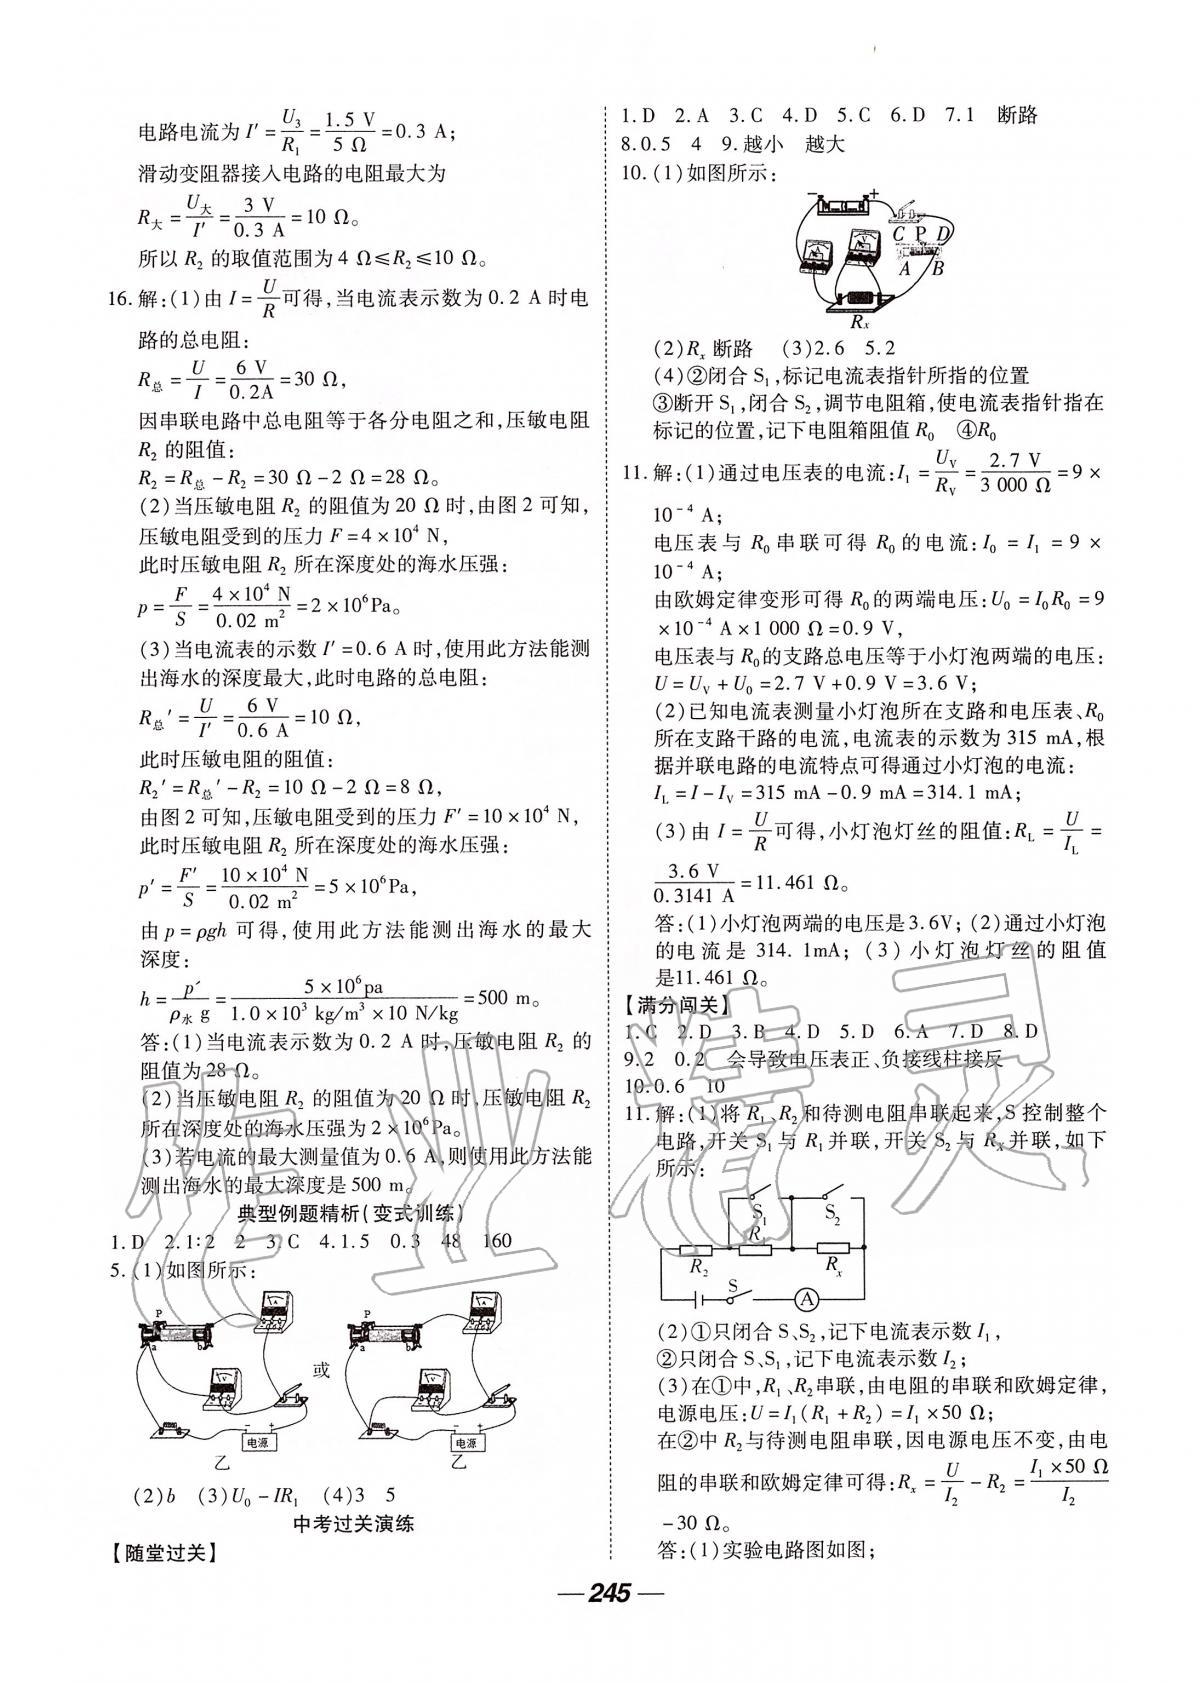 电路电流为 I′ = U₃/R₁ = 1.5 V/5 Ω = 0.3 A;
滑动变阻器接入电路的电阻最大为
R大 = U大/I′ = 3 V/0.3 A = 10 Ω。
所以 R₂ 的取值范围为 4 Ω≤R₂≤10 Ω。
16. 解:(1)由 I = U/R 可得,当电流表示数为 0.2 A 时电
路的总电阻:
R总 = U/I = 6 V/0.2A = 30 Ω,
因串联电路中总电阻等于各分电阻之和,压敏电阻
R₂ 的阻值:
R₂ = R总 - R₂ = 30 Ω - 2 Ω = 28 Ω。
(2)当压敏电阻 R₂ 的阻值为 20 Ω 时,由图 2 可知,
压敏电阻受到的压力 F = 4×10⁴ N,
此时压敏电阻 R₂ 所在深度处的海水压强:
p = F/S = 4×10⁴ N/0.02 m² = 2×10⁶Pa。
(3)当电流表的示数 I′ = 0.6 A 时,使用此方法能测
出海水的深度最大,此时电路的总电阻:
R总′ = U/I′ = 6 V/0.6 A = 10 Ω,
此时压敏电阻的阻值:
R₂′ = R总′ - R₂ = 10 Ω - 2 Ω = 8 Ω,
由图 2 可知,压敏电阻受到的压力 F′ = 10×10⁴ N,
此时压敏电阻 R₂ 所在深度处的海水压强:
p′ = F′/S = 10×10⁴ N/0.02 m² = 5×10⁶Pa,
由 p = ρgh 可得,使用此方法能测出海水的最大
深度:
h = p′/ρ水 g = 5×10⁶pa/1.0×10³ kg/m³×10 N/kg = 500 m。
答:(1)当电流表示数为 0.2 A 时,压敏电阻 R₂ 的
阻值为 28 Ω。
(2)当压敏电阻 R₂ 的阻值为 20 Ω 时,压敏电阻 R₂
所在深度处的海水压强为 2×10⁶Pa。
(3)若电流的最大测量值为 0.6 A,则使用此方法能
测出海水的最大深度是 500 m。
典型例题精析(变式训练)
1. D 2. 1:2 2 3. C 4. 1.5 0.3 48 160
5. (1)如图所示:
P a b A V - + 电源 乙
或
P a b A V - + 电源 乙
(2)b (3)U₀ - IR₁ (4)3 5
中考过关演练
【随堂过关】
1. D 2. A 3. C 4. D 5. C 6. D 7. 1 断路
8. 0.5 4 9. 越小 越大
10. (1)如图所示:
- + A V C P D A B Rₓ
(2)Rₓ 断路 (3)2.6 5.2
(4)②闭合 S₁,标记电流表指针所指的位置
③断开 S₁,闭合 S₂,调节电阻箱,使电流表指针指在
标记的位置,记下电阻箱阻值 R₀ ④R₀
11. 解:(1)通过电压表的电流:I₁ = U_V/R_V = 2.7 V/3 000 Ω = 9 ×
10⁻⁴ A;
电压表与 R₀ 串联可得 R₀ 的电流:I₀ = I₁ = 9 ×
10⁻⁴ A;
由欧姆定律变形可得 R₀的两端电压:U₀ = I₀R₀ = 9
×10⁻⁴ A×1 000 Ω = 0.9 V,
电压表与 R₀的支路总电压等于小灯泡两端的电压:
U = U_V + U₀ = 2.7 V + 0.9 V = 3.6 V;
(2)已知电流表测量小灯泡所在支路和电压表、R₀
所在支路干路的电流,电流表的示数为 315 mA,根
据并联电路的电流特点可得通过小灯泡的电流:
I_L = I - I_V = 315 mA - 0.9 mA = 314.1 mA;
(3)由 I = U/R 可得,小灯泡灯丝的阻值:R_L = U/I_L =
3.6 V/0.3141 A = 11.461 Ω。
答:(1)小灯泡两端的电压是3.6V;(2)通过小灯泡
的电流是 314.1mA;(3)小灯泡灯丝的阻值
是11.461 Ω。
【满分闯关】
1. C 2. D 3. B 4. D 5. D 6. A 7. D 8. D
9. 2 0.2 会导致电压表正、负接线柱接反
10. 0.6 10
11. 解:(1)将 R₁、R₂和待测电阻串联起来,S 控制整个
电路,开关 S₁ 与 R₁ 并联,开关 S₂ 与 Rₓ 并联,如下
所示:
S₁ S₂
R₂ R Rₓ
S A
(2)①只闭合 S、S₂,记下电流表示数 I₁,
②只闭合 S、S₁,记下电流表示数 I₂;
(3)在①中,R₁、R₂串联,由电阻的串联和欧姆定律,
电源电压:U = I₁(R₁ + R₂) = I₁ ×50 Ω;
在②中 R₂与待测电阻串联,因电源电压不变,由电
阻的串联和欧姆定律可得:Rₓ = U/I₂ - R₂ = I₁×50 Ω/I₂
- 30 Ω。
答:(1)实验电路图如图;
— 245 —
作业精灵